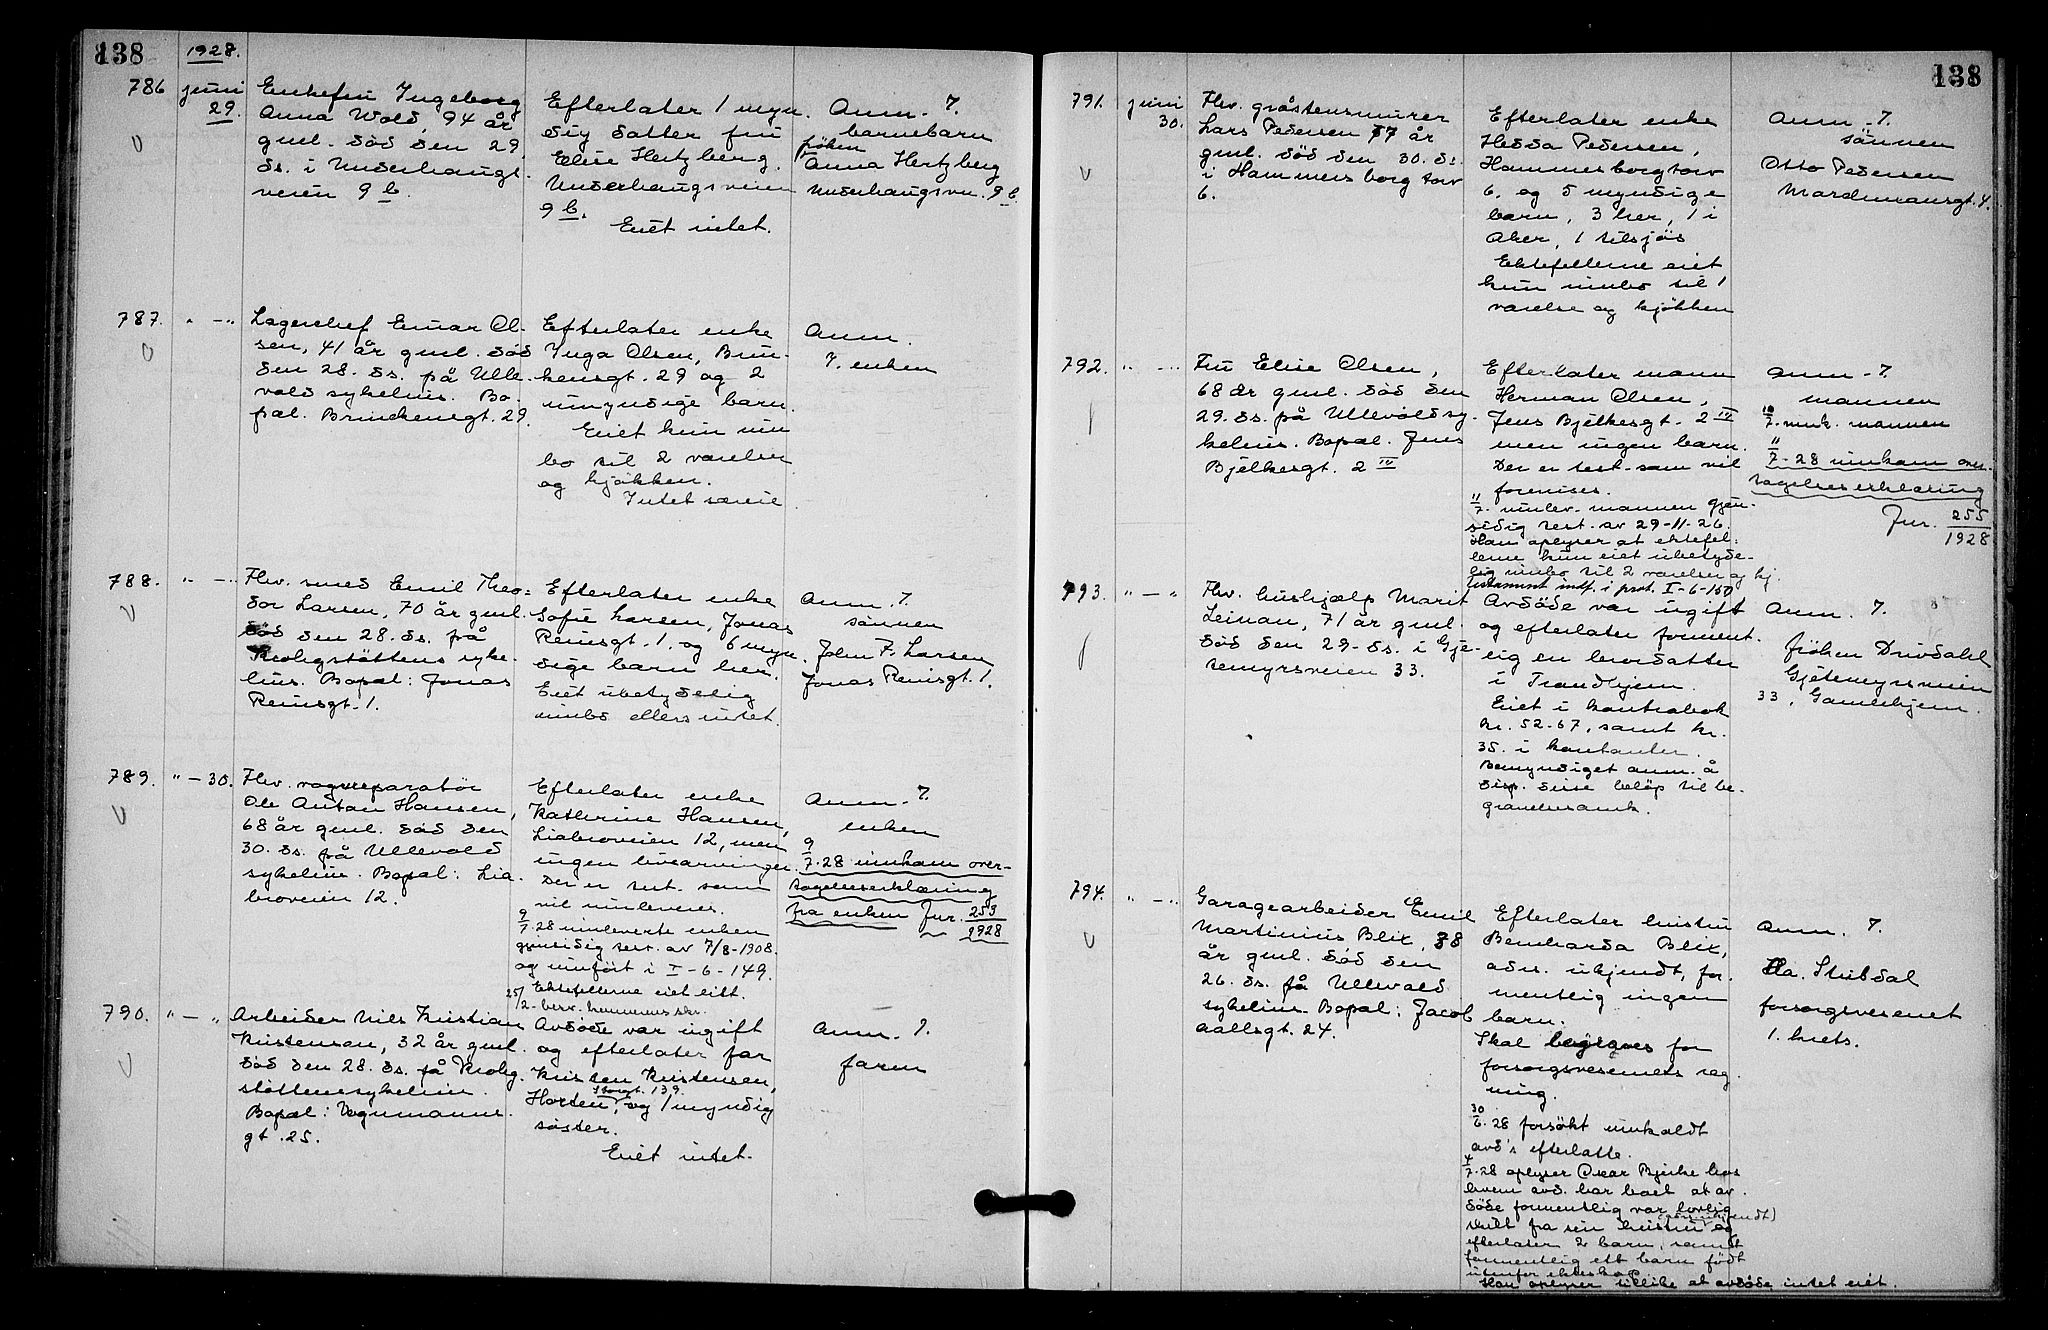 138
1928.
786
juni
29.
Enkefru Ingeborg
Anna Wold, 94 år
gml. död den 29
ds. i Underhaugs-
veien 9 b.
Efterlater 1 myn-
dig datter fru
Elise Hertzberg.
Underhaugsveien
9 b.
Eiet intet.
Anm. ?.
barnebarn
fröken
Anna Hertzberg
Underhaugsvn. 9 b.
787.
" - "
Lagerchef Einar Ol-
sen, 41 år gml. död
den 28. ds. på Ulle-
vold sykehus. Bo-
pæl. Brinchensgt. 29.
Efterlater enke
Inga Olsen, Brin-
kensgt. 29 og 2
umyndige barn.
Eiet kun inn
bo til 2 værelser
og kjökken.
Intet særeie
Anm.
?. enken
788.
" - "
Fhv. smed Emil Theo-
dor Larsen, 70 år gml.
död den 28. ds. på
Krohgstöttens syke-
hus. Bopæl: Jonas
Reinsgt. 1.
Efterlater enke
Sofie Larsen, Jonas
Reinsgt. 1. og 6 myn-
dige barn her.
Eiet ubetydelig
innbo ellers intet.
Anm. ?.
sönnen
John F. Larsen
Jonas Reinsgt. 1.
789.
" - 30.
Fhv. vognreparatör
Ole Anton Hansen,
68 år gml. död den
30. ds. på Ullevold
sykehus. Bopæl: Lia-
broveien 12.
Efterlater enke
Kathrine Hansen,
Liabroveien 12, men
ingen livsarvinger.
Der er test. som
vil innleveres.
9/7.28 innleverte enken
gjensidig test. av 7/8-1908.
og innfört i I-6-149.
Ektefellerne eiet litt.
Anm. ?.
enken
9/7.28 innkom over-
tagelseserklæring
fra enken Jnr. 253
1928
790.
" - "
Arbeider Nils Kristian
Kristensen, 32 år gml.
död den 28. ds. på Krohg-
stöttensykehus.
Bopæl: Vognmanns-
gt. 25.
Avdöde var ugift
og efterlater far
Kristen Kristensen,
Storgt. 139.
Horten, og 1 myndig
söster.
Eiet intet.
Anm. ?.
faren
138
791.
juni
30.
Fhv. gråstensmurer
Lars Pedersen 77 år
gml. död den 30. ds.
i Hammersborg torv
6.
Efterlater enke
Hedda Pedersen,
Hammersborgtorv
6. og 5 myndige
barn, 3 her, 1 i
Aker, 1 tilsjös
Ektefellerne eiet
kun innbo til 1
værelse og kjökken
Anm. ?.
sönnen
Otto Pedersen
792.
" - "
Fru Elise Olsen,
68 år gml. död den
29. ds. på Ullevoldsy-
kehus. Bopæl. Jens
Bjelkesgt. 2 IV
Efterlater mann
Herman Olsen,
Jens Bjelkesgt. 2 IV
men ingen barn.
Der er test. som vil
forevises.
11/7. innlev. mannen gjen-
sidig test. av 29-11-26.
Han oplyser at ektefel-
lerne kun eiet ubetyde-
lig innbo til 2 værelser og kj.
Testament indf. i prot. I-6-150
Anm. ?.
mannen
10/7. innk. mannen
11/7-28 innkom over-
tagelseserklæring
Jnr. 255
1928
793.
" - "
Fhv. hushjælp Marit
Leinan, 71 år gml.
död den 29. ds. i Gje-
temyrsveien 33.
Avdöde var ugift
og efterlater forment-
lig en brordatter
i Trondhjem.
Eiet i kontrabok
kr. 52.67, samt kr.
35. i kontanter.
Bemyndiget anm. å
disp. disse beløp til be-
gravelsesomk.
Anm. ?.
fröken Drivdahl
Gjetemyrsveien
33, Gamlehjem.
794.
" - "
Garagearbeider Emil
Martinius Blix, 38
år gml. död den
26. ds. på Ullevold
sykehus. Bopæl: Jacob
Aallsgt. 24.
Efterlater hustru
Bernharda Blix,
adr. ukjendt, for-
mentlig ingen
barn.
Skal begraves for
forsorgsvesenets reg-
ning.
30/6.28 forsökt innkaldt
avd's efterlatte.
4/7.28 oplyser Oscar Bjerke hos
hvem avd. har boet at av-
döde formentlig var lovlig
skilt fra sin hustru og
efterlater 2 barn, samt
formentlig ett barn födt
utenfor ekteskap
Han oplyser tillike at avdöde intet eiet.
Anm. ?.
forsorgsvesenet
1. krets.